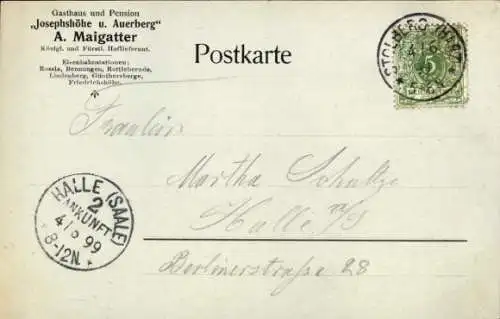 Gasthaus und Pension
„Josephshöhe u. Auerberg"
A. Maigatter
Königl. und Fürstl. Hoflieferant.
Eisenbahnstationen:
Rossla, Bennungen, Rottleberode,
Lindenberg, Günthersberge,
Friedrichshöhe.
Postkarte
STOLBERG (HARZ)
5
Fräulein
Martha Schultze
Halle a/S
Berlinerstraße 28
HALLE (SAALE)
2
ANKUNFT
99
8-12N.